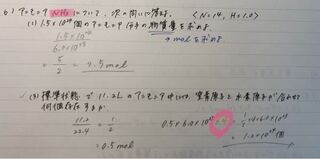 6) アンモニア NH₃ について、次の問いに答えよ。 (N=14, H=1.0)
(1) 1.5×10²⁴個のアンモニア分子の物質量を求めよ
→molを求める
1.5×10²⁴
6.0×10²³
= 5/2 = 2.5mol
(3) 標準状態で11.2Lのアンモニア中には、窒素原子と水素原子が合わせて
何個存在するか。
11.2/22.4 = 1/2
= 0.5mol
0.5×6.0×10²³×4 = 1/2×4×6.0×10²³
= 1.2×10²⁴個